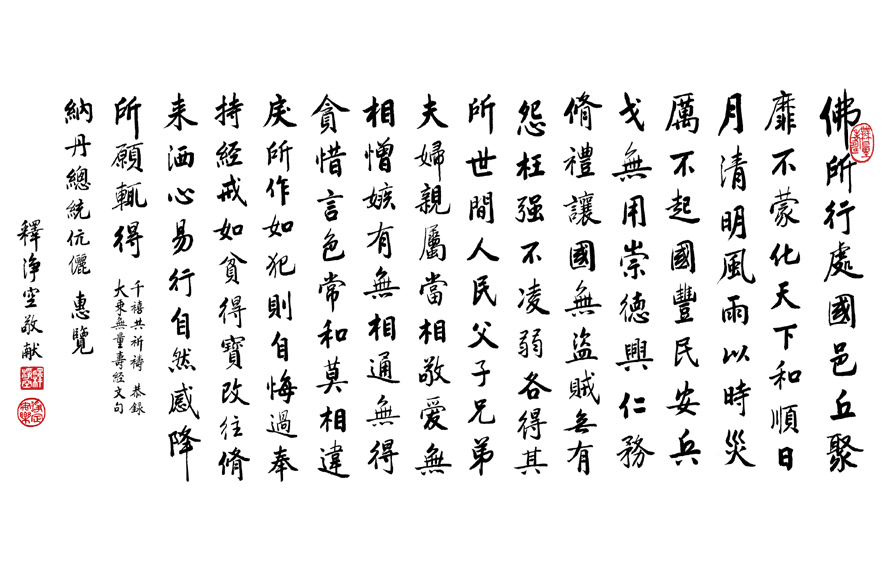 佛所行處國邑丘聚
靡不蒙化天下和順日
月清明風雨以時災
厲不起國豐民安兵
戈無用崇德興仁務
脩禮讓國無盜賊無有
怨枉强不凌弱各得其
所世間人民父子兄弟
夫婦親屬當相敬愛無
相憎嫉有無相通無得
貪惜言色常和莫相違
戾所作如犯則自悔過奉
持經戒如貧得寶改往脩
来洒心易行自然感降
所願輒得
千禧共祈禱 恭錄
大乘無量壽經文句
納丹總統伉儷 惠覽
釋淨空敬献